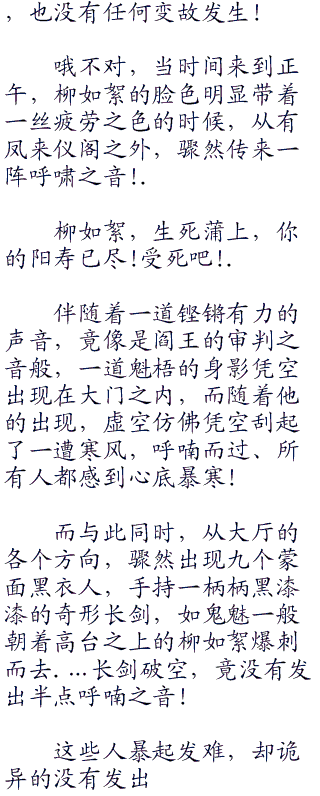 ，也没有任何变故发生！
哦不对，当时间来到正
午，柳如絮的脸色明显带着
一丝疲劳之色的时候，从有
凤来仪阁之外，骤然传来一
阵呼啸之音！.
柳如絮，生死蒲上，你
的阳寿已尽！受死吧！.
伴随着一道铿锵有力的
声音，竟像是阎王的审判之
音般，一道魁梧的身影凭空
出现在大门之内，而随着他
的出现，虚空仿佛凭空刮起
了一遭寒风，呼喃而过、所
有人都感到心底暴寒！
而与此同时，从大厅的
各个方向，骤然出现九个蒙
面黑衣人，手持一柄柄黑漆
漆的奇形长剑，如鬼魅一般
朝着高台之上的柳如絮爆刺
而去....长剑破空，竟没有发
出半点呼喃之音！
这些人暴起发难，却诡
异的没有发出